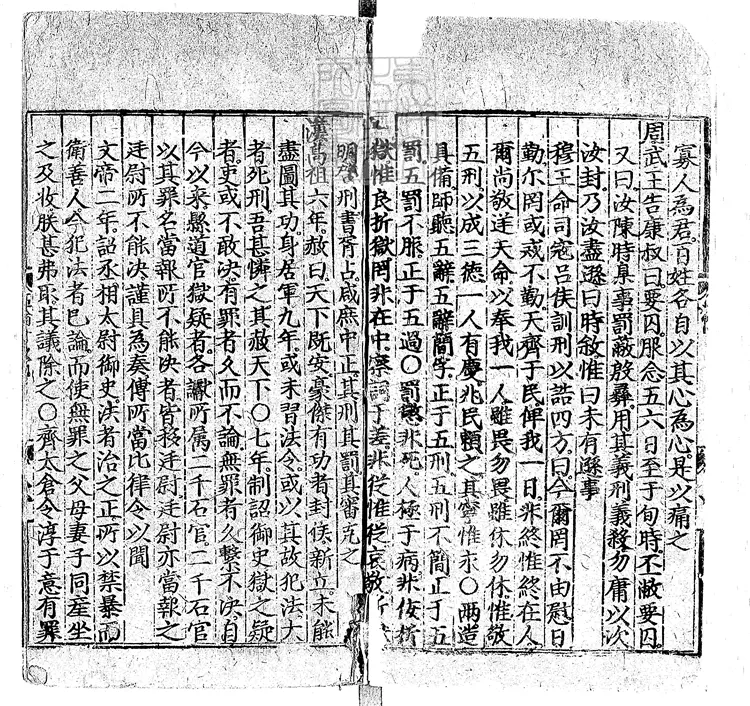 寡人為君百姓各自以其心為心是以痛之
周武王告康叔曰要囚服念五六日至于旬時丕蔽要囚
又曰汝陳時臬事罰蔽殷彛用其義刑義殺勿庸以次
汝封乃汝盡遜曰時敘惟曰未有遜事
穆王命司寇呂侯訓刑以誥四方曰今爾罔不由慰日
勤尔罔或戒不勤天齊于民俾我一日非終惟終在人
爾尚敬逆天命以奉我一人雖畏勿畏雖休勿休惟敬
五刑以成三德一人有慶兆民賴之其寧惟永〇两造
具備師聽五辭五辭簡孚正于五刑五刑不簡正于五
罰五罰不服正于五過〇罰懲非死人極于病非佞折
獄惟良折獄罔非在中察詞于差非從惟從哀敬折
明啓刑書胥占咸庶中正其刑其罰其審克之
漢高祖六年赦曰天下既安豪傑有功者封侯新立未能
盡圖其功身居軍九年或未習法令或以其故犯法大
者死刑吾甚憐之其赦天下〇七年制詔御史獄之疑
者吏或不敢決有罪者久而不論無罪者久繫不決自
今以來縣道官獄疑者各讞所属二千石官二千石官
以其罪名當報所不能決者皆移廷尉廷尉亦當報之
廷尉所不能決謹具為奏傅所當比律令以聞
文帝二年詔丞相太尉御史法者治之正所以禁暴而
衛善人今犯法者已論而使無罪之父母妻子同產坐
之及收朕甚弗取其議除之〇齊太倉令淳于意有罪